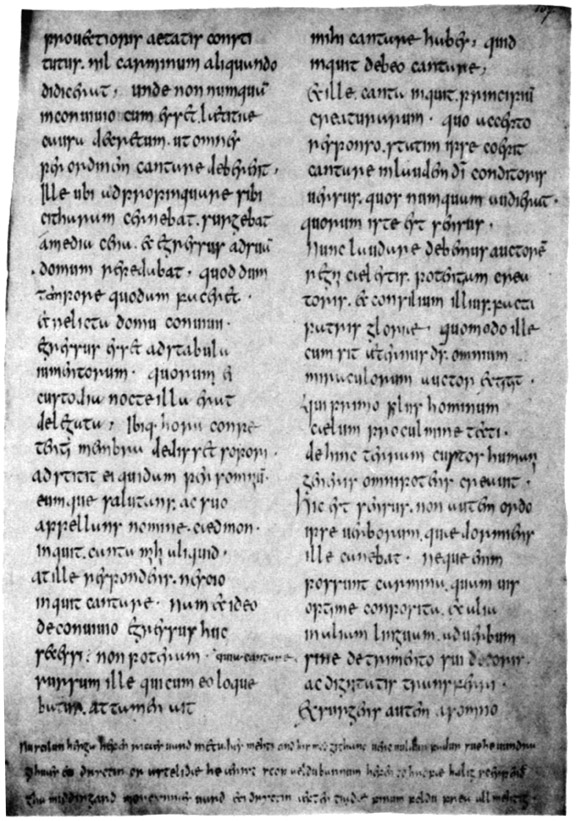 prouectioris aetatis consti
tutus. nil carminum aliquando
didicerat, unde nonnumquā
inconuiuio cum esset. laetitiae
causa decretum. ut omnes
per ordinem cantare deberent,
Ille ubi adpropinquare sibi
citharam cernebat. surgebat
amedia cena. & egressus adsuā
domum repedabat. quod dum
tempore quodam faceret.
& relicta domu conuiui.
egressus esset adstabula
iumentorum. quorum ei
custodia nocte illa erat
delegata, Ibiq; hora conpe
tenti membra dedisset sopori.
adstitit ei quidam per somniū.
eumque salutans. ac suo
appellans nomine. caedmon.
inquit. canta mihi aliquid,
at ille respondens. nescio
inquit cantare. nam & ideo
deconuiuio egressus huc
secessi. non poteram. quia cantare.
rursum ille qui cum eo loque
batur. attamen ait
mihi cantare habes, quid
inquit debeo cantare,
& ille. canta inquit. principiū
creaturarum. quo accepto
responso. statim ipse coepit
cantare inlaudem di conditoris
uersus. quos numquam audierat.
quorum iste est sensus.
Nunc laudare debemus auctorē
regni caelestis. potentiam crea
toris. & consilium illius. facta
patris gloriae. quomodo ille
cum sit aeternus ds. omnium
miraculorum auctor extitit.
Qui primo filiis hominum
caelum pro culmine tecti.
dehinc terram custos humani
generis omnipotens creauit.
Hic est sensus. non autem ordo
ipse uerborum. quae dormiens
ille canebat. neque enim
possunt carmina. quam uis
optime conposita. ex alia
inaliam linguam. ad uerbum
sine detrimento sui decoris.
ac dignitatis transferri.
Exsurgens autem asomno
Nu scilun herga hefen ricæs uard metudæs mehti and his modgithanc uerc uuldur fadur sue he uundra
gihuaes eci dryctin or astelidæ he aerist scop aeldu barnum hefen to hrofæ halig sceppend
tha middingard moncynnæs uard eci dryctin æfter tiadæ firum foldu frea allmehtig.